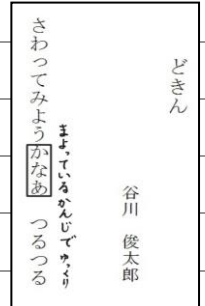 どきん
谷川　俊太郎
まよっているかんじでゆっくり
さわってみようかなあ　つるつる